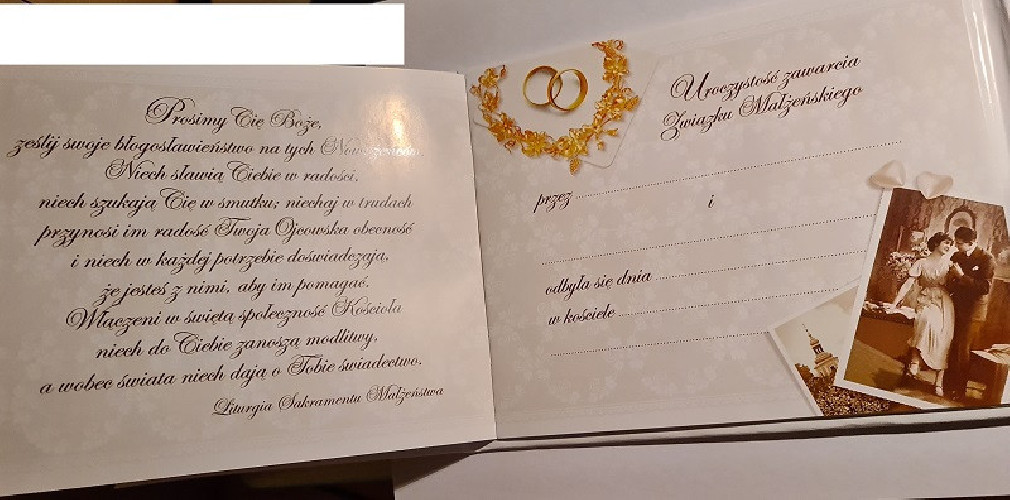 Prosimy Cię Boże,
ześlij swoje błogosławieństwo na tych Nowożeńców.
Niech sławią Ciebie w radości,
niech szukają Cię w smutku; niechaj w trudach
przynosi im radość Twoja Ojcowska obecność
i niech w każdej potrzebie doświadczają,
że jesteś z nimi, aby im pomagać.
Włączeni w świętą społeczność Kościoła
niech do Ciebie zanoszą modlitwy,
a wobec świata niech dają o Tobie świadectwo.
Liturgia Sakramentu Małżeństwa
Uroczystość zawarcia
Związku Małżeńskiego
przez
i
odbyła się dnia
w kościele